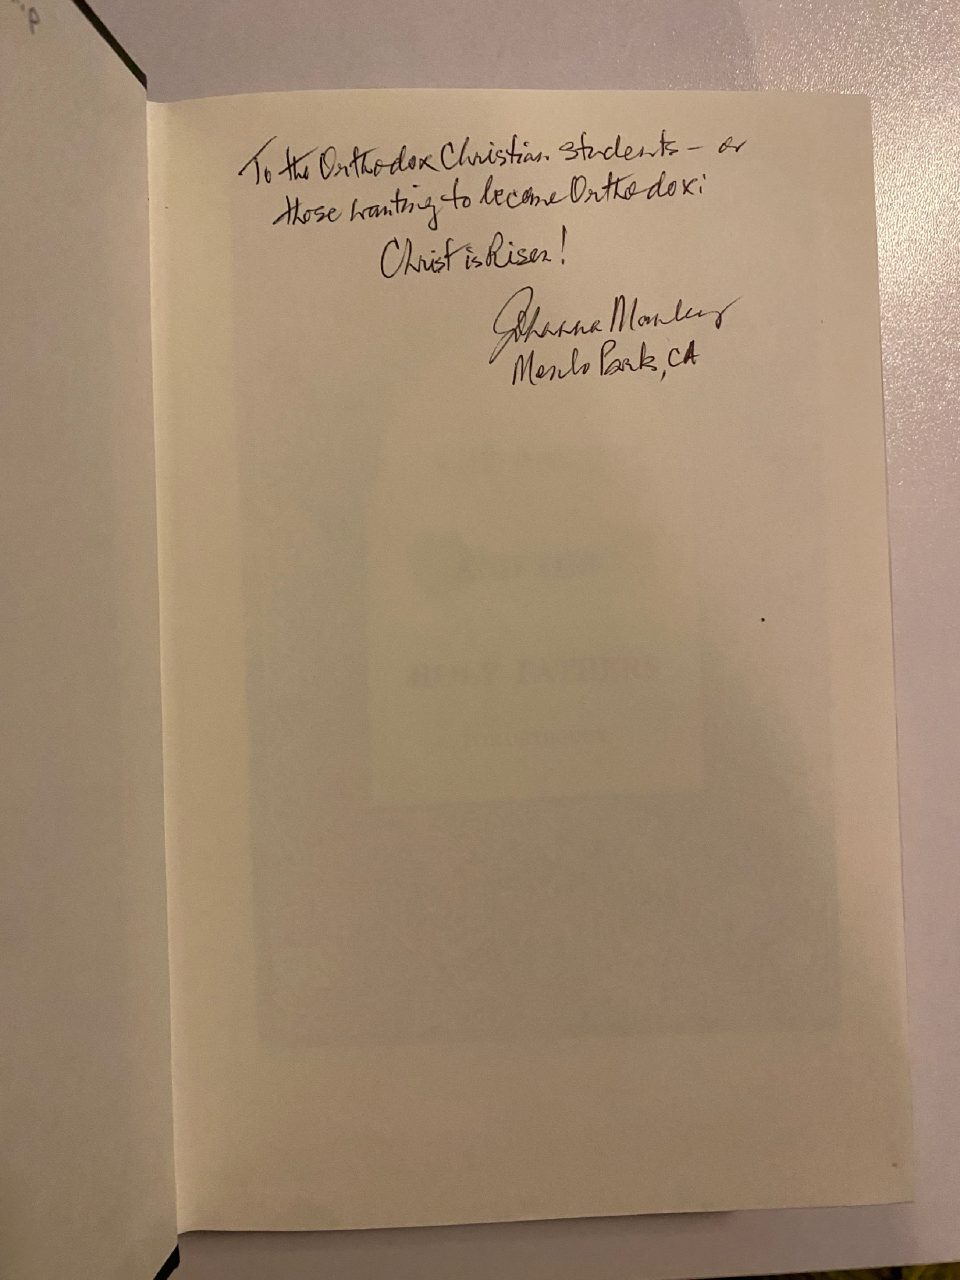 To the Orthodox Christian students – or
those wanting to become Orthodox:
Christ is Risen!
Johanna Manley
Menlo Park, CA
HOLY FATHERS